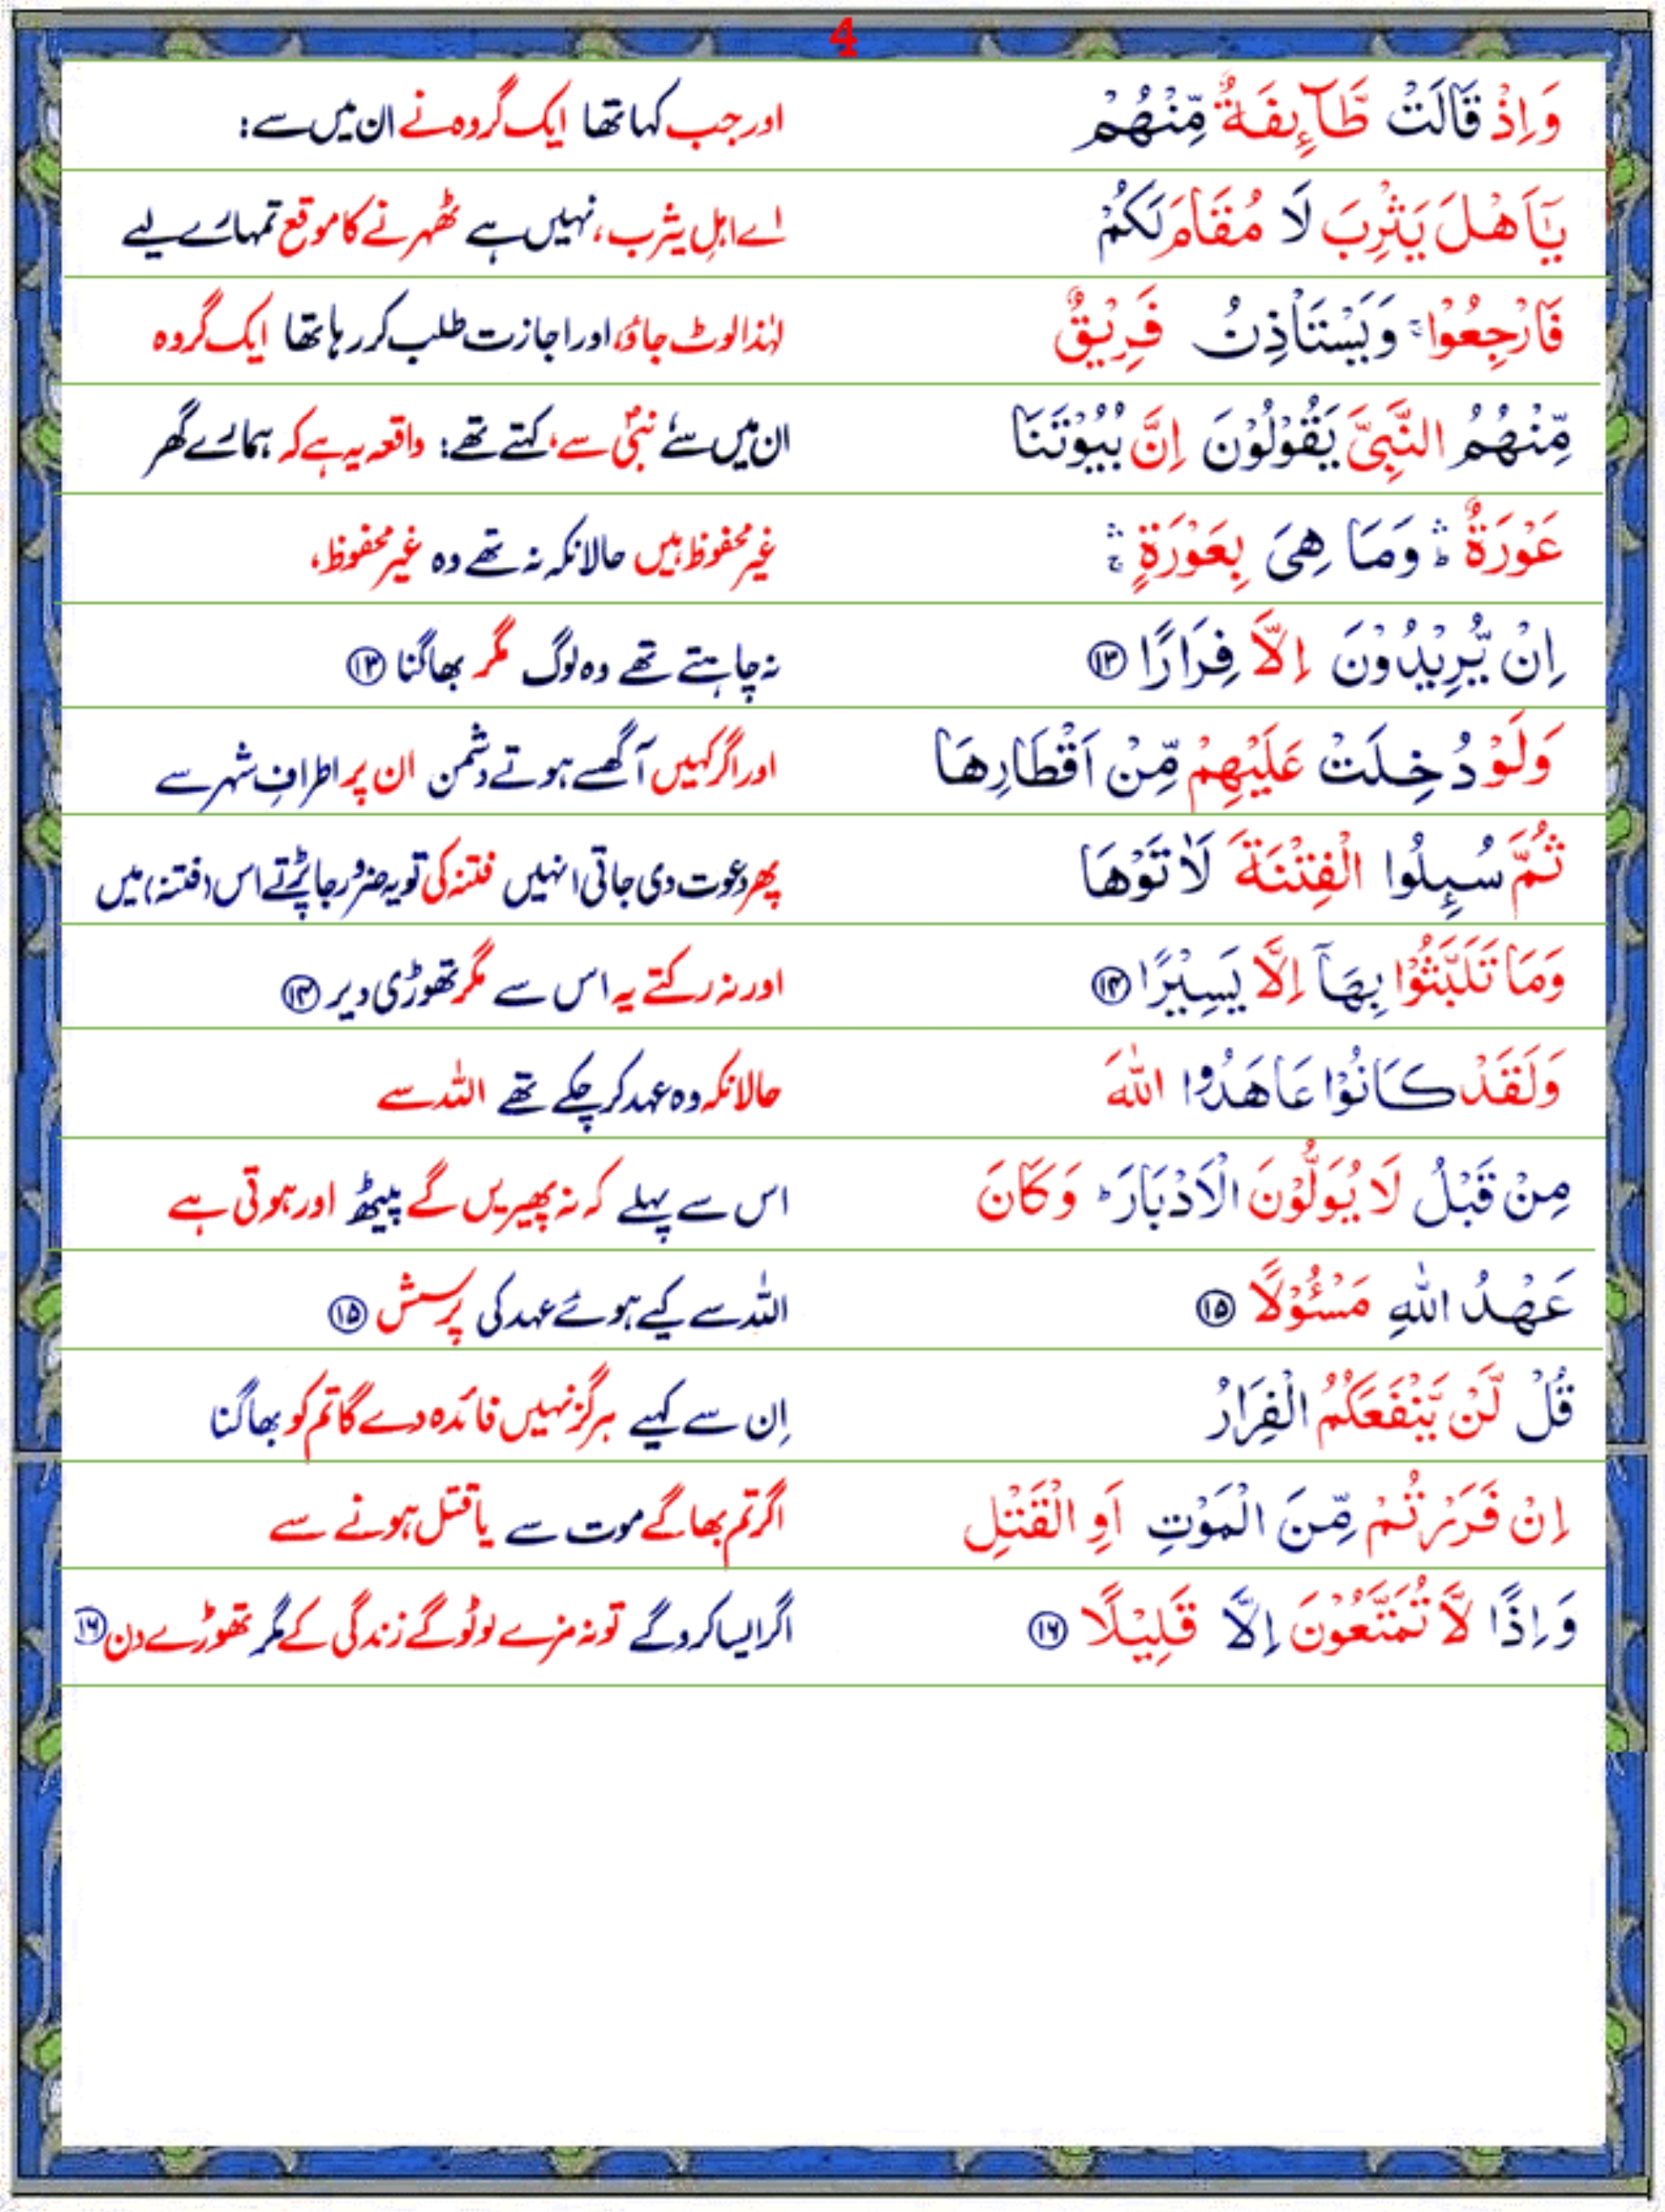 4
وَاِذْ قَالَتْ طَّآىِٕفَةٌ مِّنْهُمْ اور جب کہا تھا ایک گروہ نے ان میں سے:
يٰۤاَهْلَ يَثْرِبَ لَا مُقَامَ لَكُمْ اے اہلِ یثرب، نہیں ہے ٹھہرنے کا موقع تمہارے لیے
فَارْجِعُوْا ۚ وَيَسْتَاْذِنُ فَرِيْقٌ لہٰذا لوٹ جاؤ، اور اجازت طلب کر رہا تھا ایک گروہ
مِّنْهُمُ النَّبِىَّ يَقُوْلُوْنَ اِنَّ بُيُوْتَنَا ان میں سے نبیؐ سے، کہتے تھے: واقعہ یہ ہے کہ ہمارے گھر
عَوْرَةٌ ۛؕ وَمَا هِىَ بِعَوْرَةٍ ۛۚ غیر محفوظ ہیں حالانکہ نہ تھے وہ غیر محفوظ،
اِنْ يُّرِيْدُوْنَ اِلَّا فِرَارًا ۱۳ نہ چاہتے تھے وہ لوگ مگر بھاگنا ۱۳
وَلَوْ دُخِلَتْ عَلَيْهِمْ مِّنْ اَقْطَارِهَا اور اگر کہیں آ گھسے ہوتے دشمن ان پر اطرافِ شہر سے
ثُمَّ سُىِٕلُوا الْفِتْنَةَ لَاٰتَوْهَا پھر دعوت دی جاتی انہیں فتنہ کی تو یہ ضرور جا پڑتے اس (فتنہ) میں
وَمَا تَلَبَّثُوْا بِهَاۤ اِلَّا يَسِيْرًا ۱۴ اور نہ رکتے یہ اس سے مگر تھوڑی دیر ۱۴
وَلَقَدْ كَانُوْا عَاهَدُوا اللّٰهَ حالانکہ وہ عہد کر چکے تھے اللہ سے
مِنْ قَبْلُ لَا يُوَلُّوْنَ الْاَدْبَارَ ؕ وَكَانَ اس سے پہلے کہ نہ پھیریں گے پیٹھ اور ہوتی ہے
عَهْدُ اللّٰهِ مَسْـُٔوْلًا ۱۵ اللہ سے کیے ہوئے عہد کی پرسش ۱۵
قُلْ لَّنْ يَّنْفَعَكُمُ الْفِرَارُ اِن سے کہیے ہرگز نہیں فائدہ دے گا تم کو بھاگنا
اِنْ فَرَرْتُمْ مِّنَ الْمَوْتِ اَوِ الْقَتْلِ اگر تم بھاگے موت سے یا قتل ہونے سے
وَاِذًا لَّا تُمَتَّعُوْنَ اِلَّا قَلِيْلًا ۱۶ اگر ایسا کرو گے تو نہ مزے لوٹو گے زندگی کے مگر تھوڑے دن ۱۶